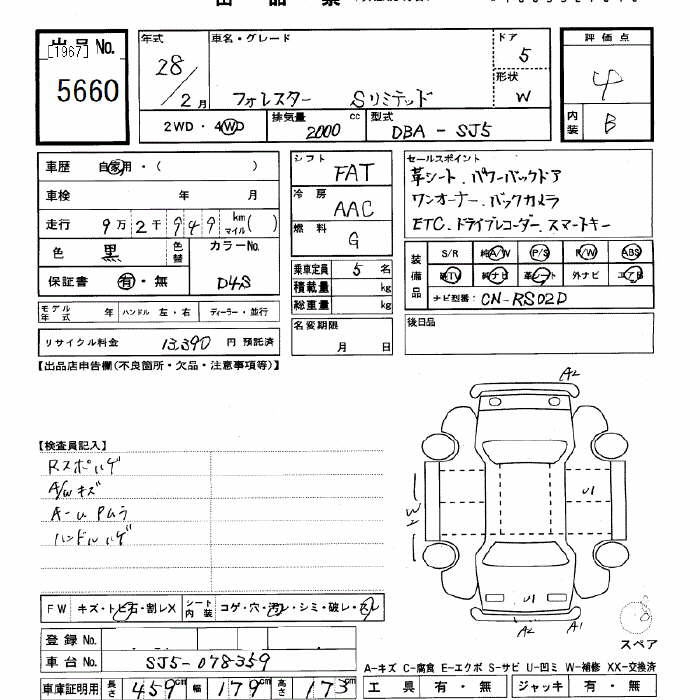 出品票
出品No. [1967]
5660
年式 28/2月
車名・グレード フォレスター Sリミテッド
ドア 5
形状 W
評価点 4
内装 B
2WD・4WD
排気量 2000 cc
型式 DBA-SJ5
車歴 自家用・( )
車検 年 月
走行 9万2千949 km マイル( )
色 黒 色替
カラーNo. D4S
保証書 有・無
モデル年式 年 ハンドル 左・右 ディーラー・並行
リサイクル料金 13,390 円 預託済
シフト FAT
冷房 AAC
燃料 G
乗車定員 5 名
積載量 kg
総重量 kg
名変期限 月 日
セールスポイント
革シート.パワーバックドア
ワンオーナー.バックカメラ
ETC.ドライブレコーダー.スマートキー
装備品 S/R 純A/W P/S P/W ABS
純TV 純ナビ 革シート 外ナビ エアB
ナビ型番: CN-RS02D
後日品
【出品店申告欄(不良箇所・欠品・注意事項等)】
【検査員記入】
Rスポハゲ
A/wキズ
A-u Pムラ
ハンドルハゲ
A2
W2
U1
U1
A2
A1
8
スペア
FW キズ・トビ石・割レX
シート内装 コゲ・穴・汚レ・シミ・破レ・スレ
登録No.
車台No. SJ5-078359
A-キズ C-腐食 E-エクボ S-サビ U-凹ミ W-補修 XX-交換済
車庫証明用 長さ 459cm 幅 179cm 高さ 173cm
工具 有・無 ジャッキ 有・無